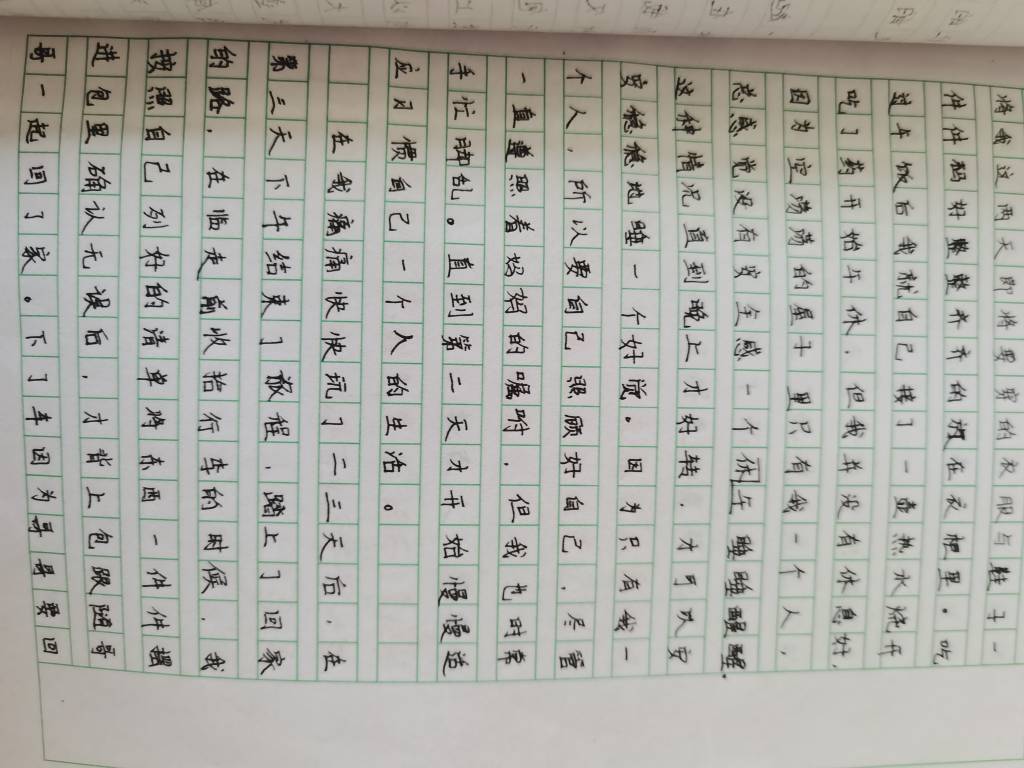 将我这两天即将要穿的衣服与鞋子一
件件码好整整齐齐的放在衣柜里。吃
过午饭后我就自己接了一壶热水烧开
吃了药开始午休,但我并没有休息好,
因为空荡荡的屋子里只有我一个人,
总感觉没有安全感一个休午睡睡醒醒.
这种情况直到晚上才好转,才可以安
安稳稳地睡一个好觉。因为只有我一
个人,所以要自己照顾好自己,尽管
一直遵照着妈妈的嘱咐,但我也时常
手忙脚乱。直到第二天才开始慢慢适
应习惯自己一个人的生活。
在我痛痛快快玩了二三天后,在
第三天下午结束了旅程,踏上了回家
的路,在临走前收拾行李的时候,我
按照自己列好的清单将东西一件件摆
进包里确认无误后,才背上包跟随哥
哥一起回了家。下了车因为哥哥要回